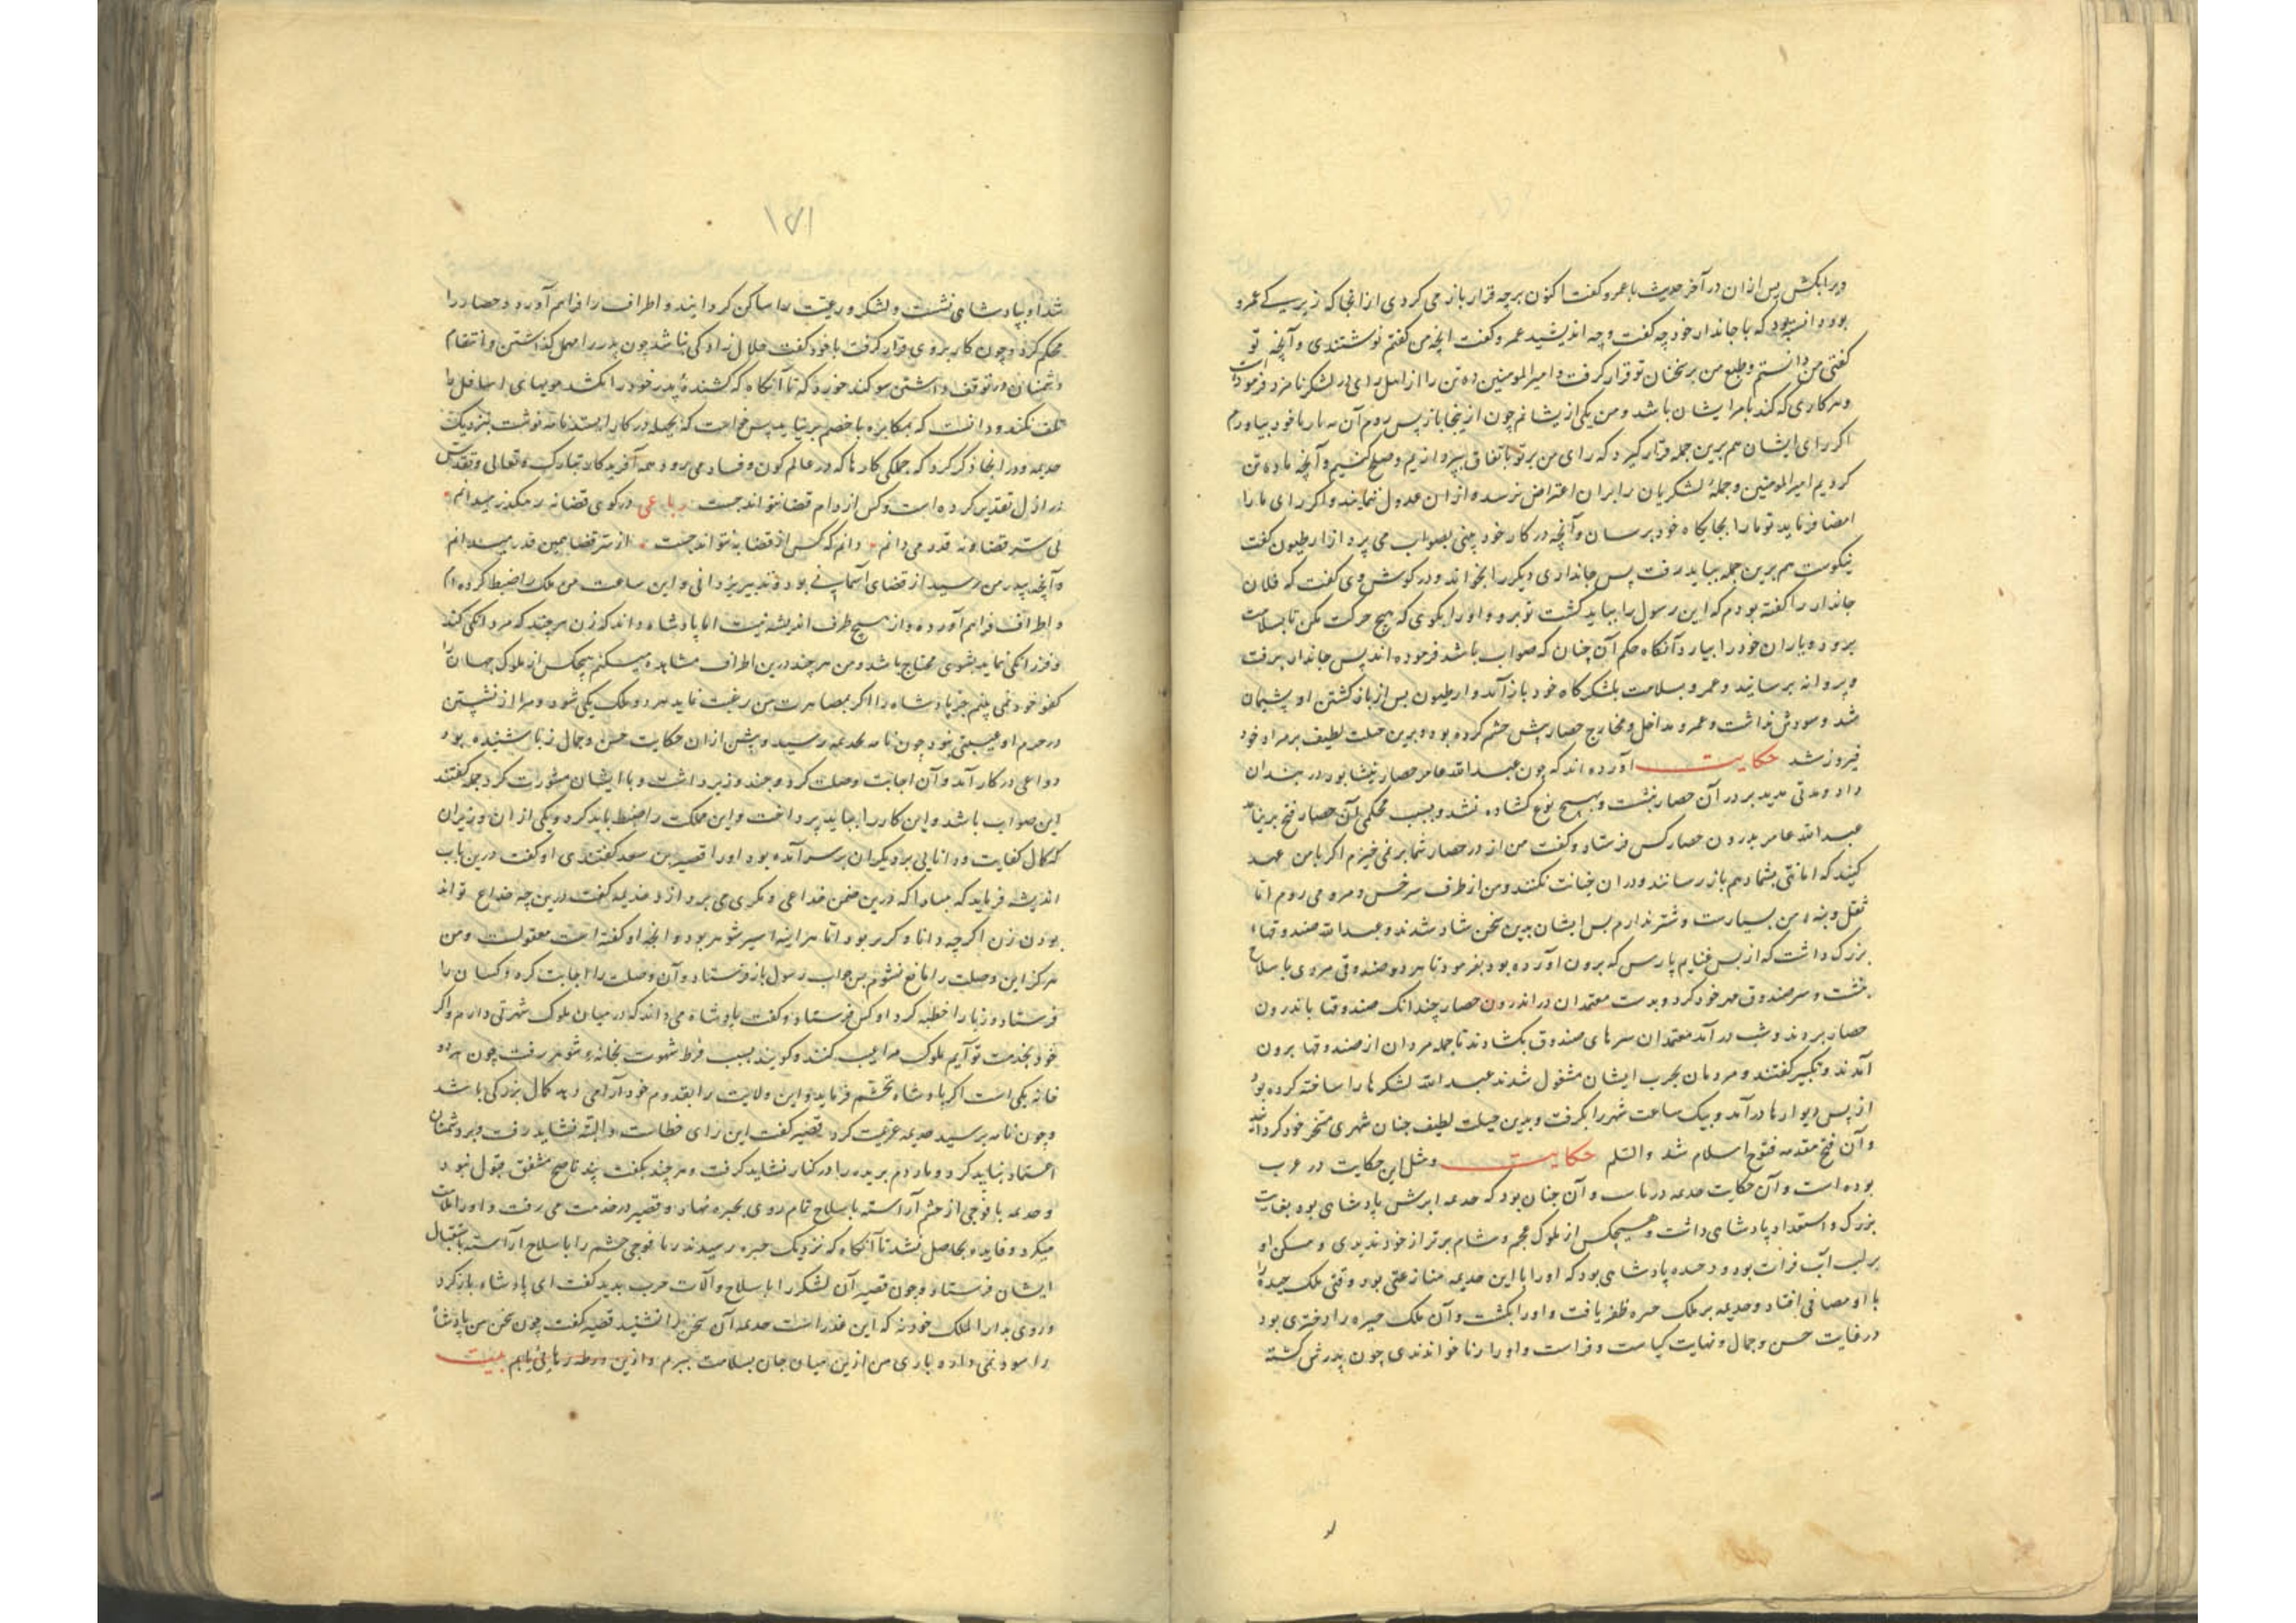 ویرا بکش پس از ان در آخر حدیث با عمرو گفت اکنون بر چه قرار باز می کردی از انجا که زیرکی عمرو
بود دانسته بود که با جاندار خود چه گفت و چه اندیشید عمرو گفت انچه من گفتم نوشتندی و آنچه تو
گفتی من دانستم و طبع من بر سخنان تو قرار گرفت و امیر المومنین ده تن را از اهل رای در لشکر نامزد فرموده است
و هر کاری که کند بامر ایشان باشد و من یکی از یشانم چون از ینجا باز پس روم آن نه یار با خود بیاورم
اگر رای ایشان هم برین جمله قرار گیرد که رای من بر تو باتفاق بپردازیم و صلح کنیم و آنچه ما ده تن
کردیم امیر المومنین و جملهٔ لشکریان را بران اعتراض نرسد و از ان عدول ننمایند و اگر رای ما را
امضا فرماید تو ما را بجایگاه خود برسان و آنچه در کار خود بینی بصواب می پرداز ارطیون گفت
نیکوست هم برین جمله بباید رفت پس جانداری دیگر را بخواند و در گوش وی گفت که فلان
جاندار را گفته بودم که این رسول را بباید کشت تو برو و او را بگوی که هیچ حرکت مکن تا بسلامت
برود و یاران خود را بیارد آنگاه حکم آن چنان که صواب باشد فرموده اند پس جاندار برفت
و پروانه برسانید و عمرو بسلامت بلشکرگاه خود باز آمد و ارطیون بس از باز گشتن او پشیمان
شد و سودش نداشت و عمرو مداخل و مخارج حصار پیش چشم کرده بود و برین حیلت لطیف بر مراد خود
فیروز شد حکایت آورده اند که چون عبد الله عامر حصار نیشابور در بندان
داد و مدتی مدید بر در آن حصار بنشست و بهیچ نوع کشاده نشد و بسبب محکمی آن حصار فتح بر نیامد
عبد الله عامر بدرون حصار کس فرستاد و گفت من از در حصار شما بر نمی خیزم اگر با من عهد
کنید که امانتی بشما دهم باز رسانند و دران خیانت نکنند و من از طرف سرخس و مرو می روم اما
ثقل و بنه من بسیارست و شتر ندارم بس ایشان بدین سخن شاد شدند و عبد الله صندوقهاء
بزرگ داشت که از بس غنایم پارس که برون آورده بود بفرمود تا بهر دو صندوقی مردی با سلاح
بنشست و سر صندوق مهر خود کرد و بدست معتمدان در اندرون حصار چندانک صندوقها باندرون
حصار بردند و شب در آمد معتمدان سرهای صندوق بکشادند تا جمله مردان از صندوقها برون
آمدند و تکبیر گفتند و مردمان بحرب ایشان مشغول شدند عبد الله لشکرها را ساخته کرده بود
از پس دیوارها در آمد و بیک ساعت شهر را بگرفت و بدین حیلت لطیف چنان شهری مسخر خود کردانید
و آن فتح مقدمه فتوح اسلام شد والسلم حکایت و مثل این حکایت در عرب
بوده است و آن حکایت جذیمه و آن چنان بود که جذیمه ابرش پادشاهی بود بغایت
بزرگ و استعداد پادشاهی داشت و هیچکس از ملوک عجم و شام برتر از خود ندیدی و مسکن او
بر لب آب فرات بود و پادشاهی بود که او را با این جذیمه منازعتی بود وقتی ملک حیره را
با او مصافی افتاد و جذیمه بر ملک حیره ظفر یافت و او را بکشت و آن ملک حیره را دختری بود
در غایت حسن و جمال و نهایت کیاست و فراست و او را زبا خواندندی چون پدرش کشته
۱۵۱
شد او بپادشاهی نشست و لشکر و رعیت را ساکن کردانید و اطراف را فراهم آورد و حصار را
محکم کرد و چون کار بر وی قرار گرفت با خود گفت حلال زادگی نباشد خون پدر را مهمل گذاشتن و انتقام
دشمنان در توقف داشتن سوکند خورد که تا آنگاه که کشنده پدر خود را نکشد مویهای اسافل را
تلف نکند و دانست که بمکابره با خصم بر نیاید پس خواست که بحیله در کار ایستد نامه نوشت بنزدیک
جذیمه و در انجا ذکر کرد که جملگی کارها که در عالم کون و فساد می رود همه آفریدکار تبارک و تعالی و تقدس
در ازل تقدیر کرده است و کس از دام قضا نتواند جست رباعی در کوی قضا نه رهگذر میدانم
نی سر قضا و نه قدر می دانم دانم که کس از قضا نتواند جست از سر قضا همین قدر میدانم
و آنچه پدر من رسید از قضای آسمانی بود و تدبیر یزدانی و این ساعت من ملک را ضبط کرده ام
و اطراف فراهم آورده و از هیچ طرف اندیشه نیست اما پادشاه داند که زن هر چند که مردانکی کند
و فرزانکی نماید بشوی محتاج باشد و من هر چند درین اطراف مشاهده میکنم هیچکس از ملوک جهان را
کفو خود نمی بینم جز پادشاه را اگر بمصاهرت من رغبت نماید هر دو ملک یکی شود و مرا از نشستن
در حرم او عیبی نبود چون نامه بجذیمه رسید و پیش از ان حکایت حسن و جمال زبا شنیده بود
دواعی در کار آمد و آن اجابت وصلت کرد و چند وزیر داشت و با ایشان مشورت کرد جمله گفتند
این صواب باشد و این کار را بباید پرداخت و این مملکت را ضبط باید کرد و یکی از ان وزیران
که کمال کفایت و دانایی بر دیگران بر سر آمده بود او را قصیر بن سعد گفتندی او گفت درین باب
اندیشه فرماید که مبادا که درین ضمن خداعی و مکری می پردازد جذیمه گفت درین چه خداع تواند
بودن زن اگر چه دانا و کربز بود اما هر اینه اسیر شوهر بود و انچه او گفته است معقولست و من
هرگز این وصلت را مانع نشوم بس جواب رسول باز فرستاد و آن وصلت را اجابت کرد و کسان را
فرستاد و زبا را خطبه کرد او کس فرستاد و گفت پادشاه می داند که در میان ملوک شهرتی دارم و اگر
خود بخدمت تو آیم ملوک مرا عیب کنند و گویند بسبب فرط شهوت بخانهٔ شوهر رفت چون هر دو
خانه یکی است اگر پادشاه تجشم فرماید و این ولایت را بقدوم خود آرامی دهد کمال بزرگی باشد
و چون نامه برسید جذیمه عزیمت کرد قصیر گفت این رای خطاست و البته نشاید رفت و بر دشمنان
اعتماد نباید کرد و مار دم بریده را در کنار نشاید گرفت و هر چند بگفت پند ناصح مشفق قبول نبود
و جذیمه با فوجی از حشم آراسته با سلاح تمام روی بحیره نهاد و قصیر در خدمت می رفت و او را ملامت
میکرد و فایده بحاصل نشد تا آنگاه که نزدیک حیره رسیدند زبا فوجی حشم را با سلاح آراسته باستقبال
ایشان فرستاد و چون قصیر آن لشکر را با سلاح و آلات حرب بدید گفت ای پادشاه باز گرد
و روی بدار الملک خود نه که این غدر است جذیمه آن سخن را نشنید قصیر گفت چون سخن من پادشاه
را سود نمی دارد باری من از ین میان جان بسلامت ببرم و ازین ورطه رهایی یابم بیت